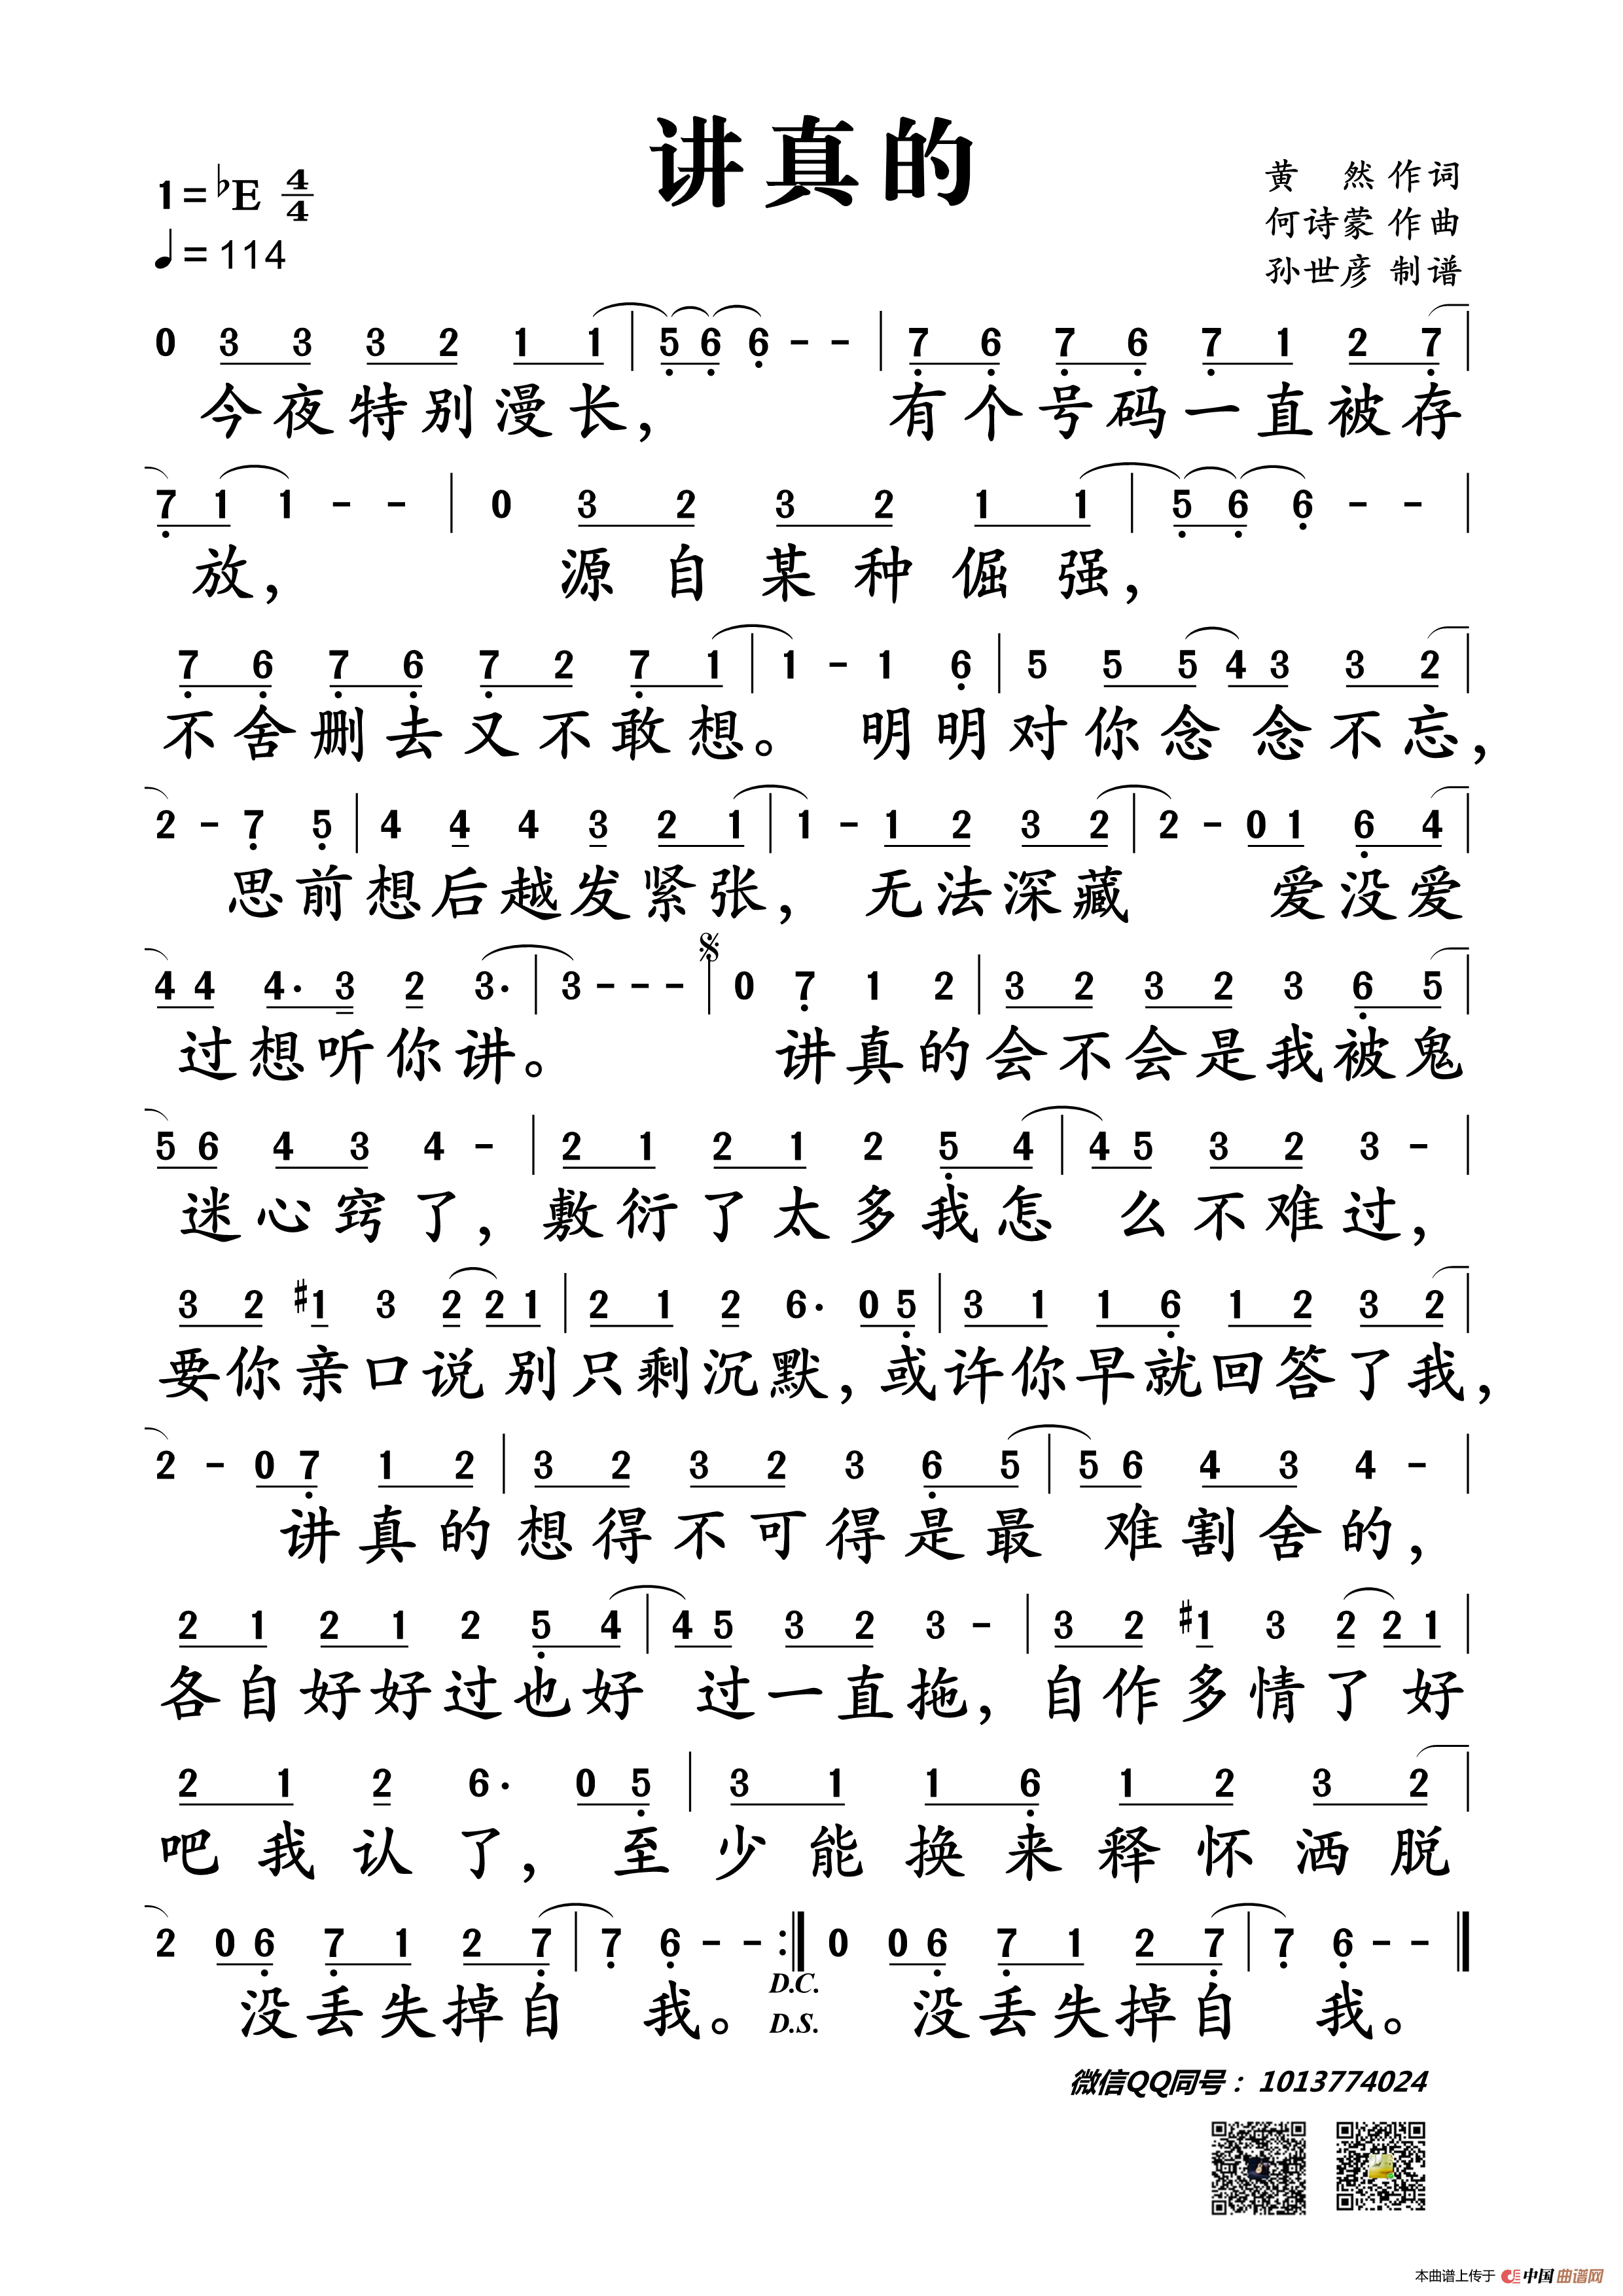 讲真的
1=♭E 4/4
♩=114
黄 然 作词
何诗蒙 作曲
孙世彦 制谱
0 3 3 3 2 1 1 | 5 6 6 - - | 7 6 7 6 7 1 2 7 |
今夜特别漫长, 有个号码一直被存
7 1 1 - - | 0 3 2 3 2 1 1 | 5 6 6 - - |
放, 源自某种倔强,
7 6 7 6 7 2 7 1 | 1 - 1 6 | 5 5 5 4 3 3 2 |
不舍删去又不敢想。 明明对你念念不忘,
2 - 7 5 | 4 4 4 3 2 1 | 1 - 1 2 3 2 | 2 - 0 1 6 4 |
思前想后越发紧张, 无法深藏 爱没爱
4 4 4· 3 2 3· | 3 - - - | 0 7 1 2 | 3 2 3 2 3 6 5 |
过想听你讲。 讲真的会不会是我被鬼
5 6 4 3 4 - | 2 1 2 1 2 5 4 | 4 5 3 2 3 - |
迷心窍了, 敷衍了太多我怎 么不难过,
3 2 #1 3 2 2 1 | 2 1 2 6· 0 5 | 3 1 1 6 1 2 3 2 |
要你亲口说别只剩沉默, 或许你早就回答了我,
2 - 0 7 1 2 | 3 2 3 2 3 6 5 | 5 6 4 3 4 - |
讲真的想得不可得是最 难割舍的,
2 1 2 1 2 5 4 | 4 5 3 2 3 - | 3 2 #1 3 2 2 1 |
各自好好过也好 过一直拖, 自作多情了 好
2 1 2 6· 0 5 | 3 1 1 6 1 2 3 2 |
吧我认了, 至少能换来释怀洒脱
2 0 6 7 1 2 7 | 7 6 - - :‖ 0 0 6 7 1 2 7 | 7 6 - - ‖
没丢失掉自 我。 D.C. D.S. 没丢失掉自 我。
微信QQ同号：1013774024
本曲谱上传于 中国曲谱网